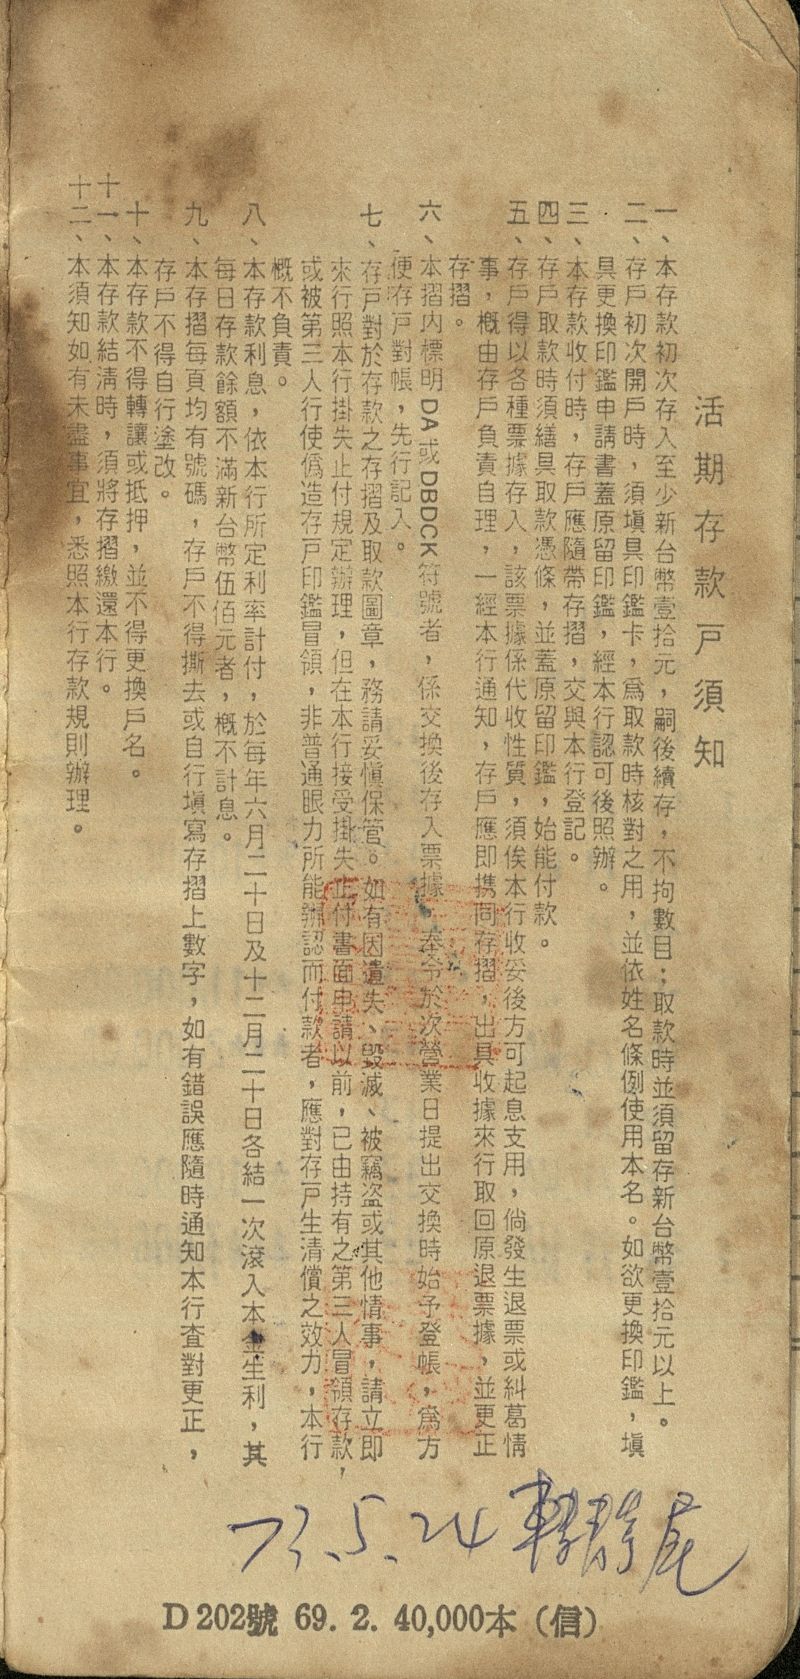 活期存款戶須知
一、本存款初次存入至少新台幣壹拾元，嗣後續存，不拘數目；取款時並須留存新台幣壹拾元以上。
二、存戶初次開戶時，須塡具印鑑卡，爲取款時核對之用，並依姓名條例使用本名。如欲更換印鑑，塡
具更換印鑑申請書蓋原留印鑑，經本行認可後照辦。
三、本存款收付時，存戶應隨帶存摺，交與本行登記。
四、存戶取款時須繕具取款憑條，並蓋原留印鑑，始能付款。
五、存戶得以各種票據存入，該票據係代收性質，須俟本行收妥後方可起息支用，倘發生退票或糾葛情
事，概由存戶負責自理，一經本行通知，存戶應即携同存摺，出具收據來行取回原退票據，並更正
存摺。
六、本摺內標明DA或DBDCK符號者，係交換後存入票據，奉令於次營業日提出交換時始予登帳，爲方
便存戶對帳，先行記入。
七、存戶對於存款之存摺及取款圖章，務請妥愼保管。如有因遺失、毀滅、被竊盜或其他情事，請立即
來行照本行掛失止付規定辦理，但在本行接受掛失止付書面申請以前，已由持有之第三人冒領存款，
或被第三人行使僞造存戶印鑑冒領，非普通眼力所能辦認而付款者，應對存戶生清償之效力，本行
概不負責。
八、本存款利息，依本行所定利率計付，於每年六月二十日及十二月二十日各結一次滾入本金生利，其
每日存款餘額不滿新台幣伍佰元者，概不計息。
九、本存摺每頁均有號碼，存戶不得撕去或自行塡寫存摺上數字，如有錯誤應隨時通知本行査對更正，
存戶不得自行塗改。
十、本存款不得轉讓或抵押，並不得更換戶名。
十一、本存款結淸時，須將存摺繳還本行。
十二、本須知如有未盡事宜，悉照本行存款規則辦理。
73.5.24
D 202號 69. 2. 40,000本（信）